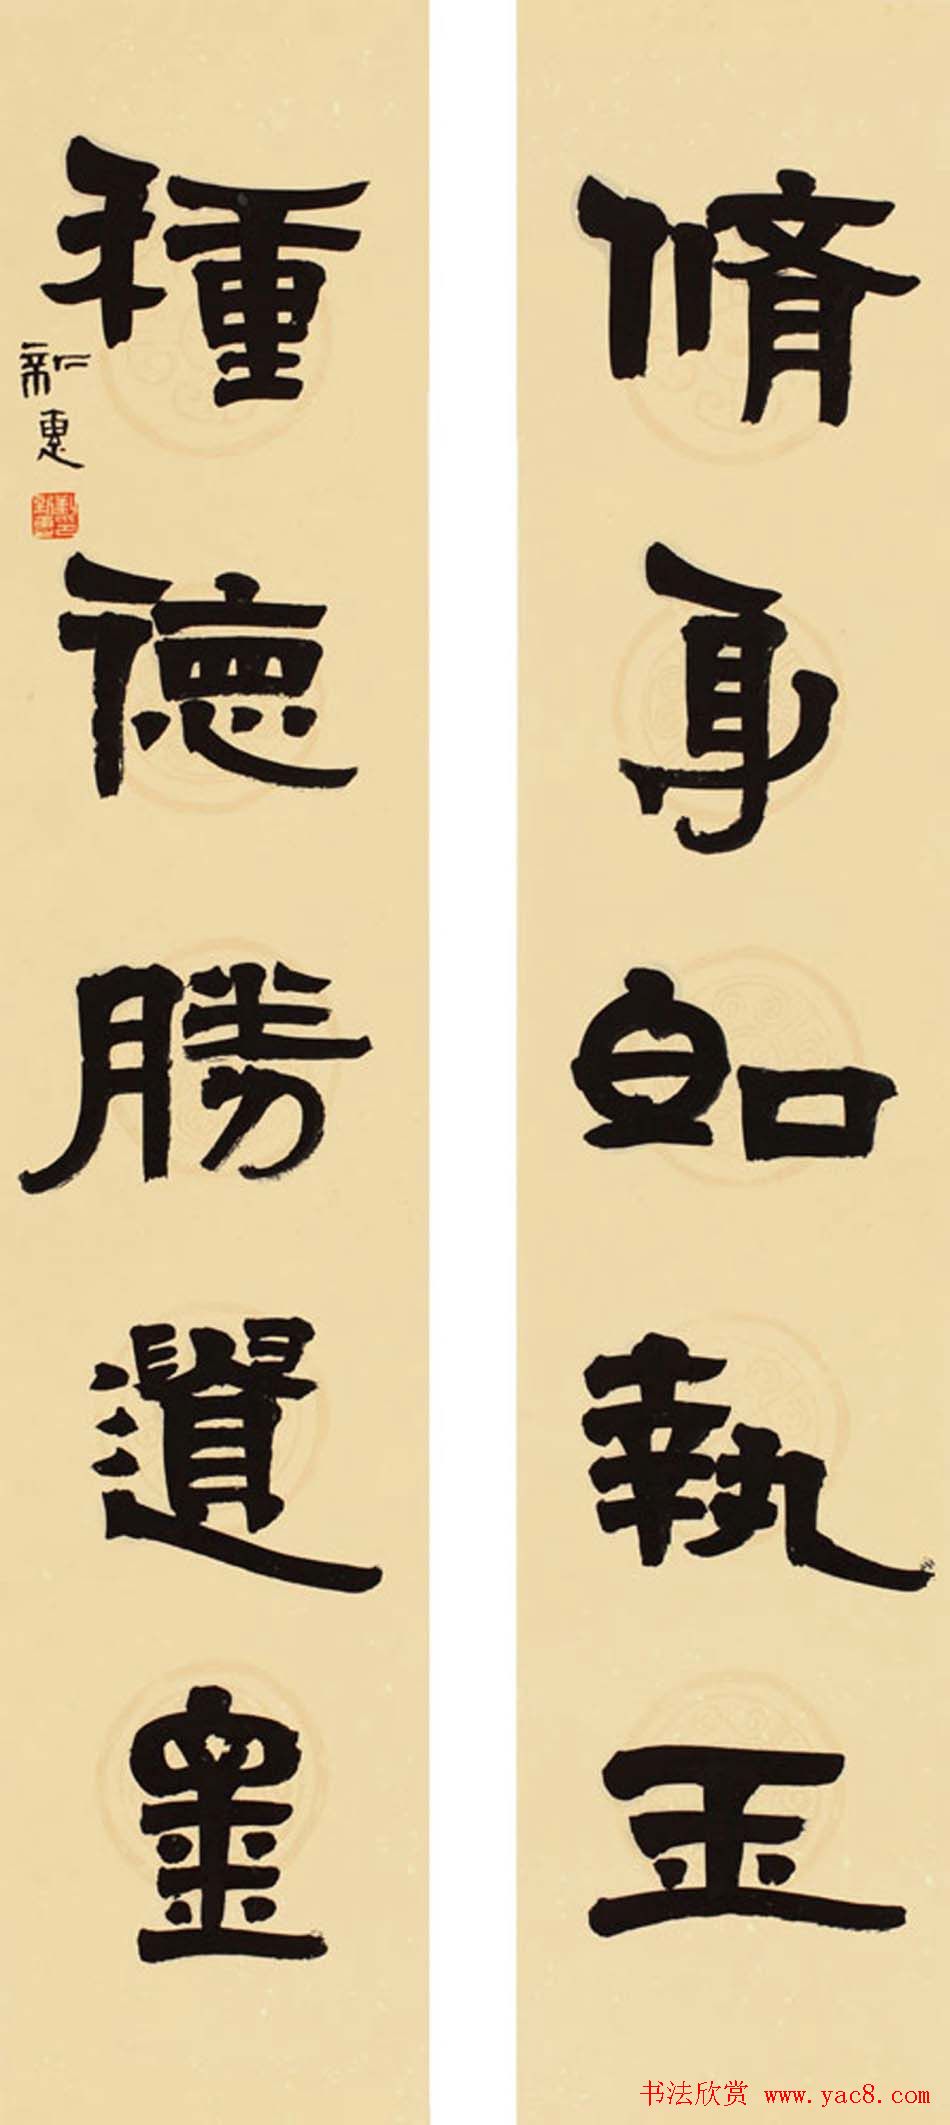 脩身如執玉
種德勝遺金
新惠
书法欣赏 www.yac8.com